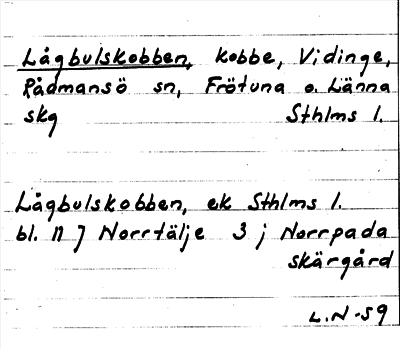 Lågbulskobben, kobbe, Vidinge,
Rådmansö sn, Frötuna o. Länna
skg Sthlms l.
Lågbulskobben, ek Sthlms l.
bl. 17 J Norrtälje 3 j Norrpada
skärgård
L.N-59